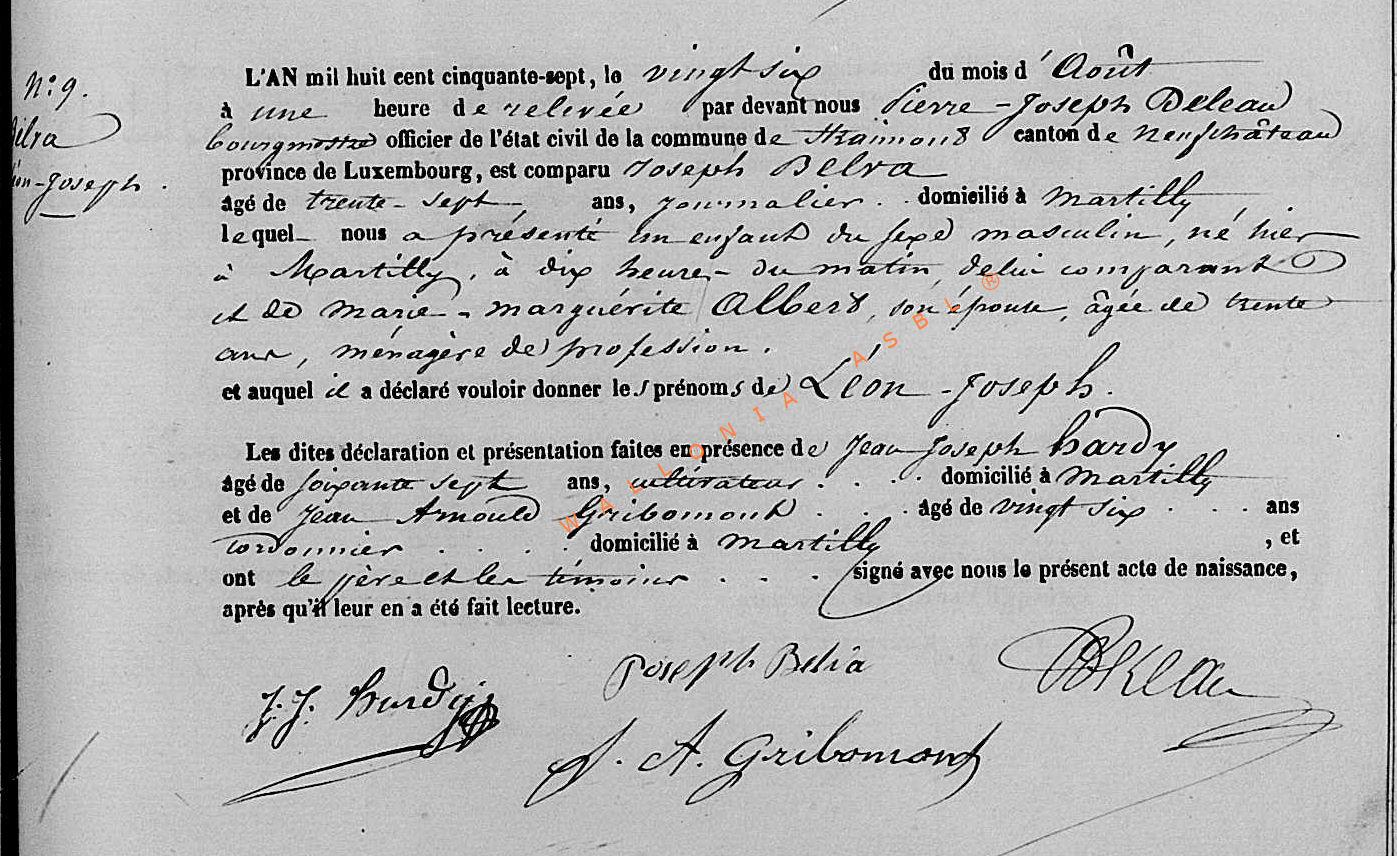 N°: 9.
Léon-Joseph.
L'AN mil huit cent cinquante-sept, le vingt six du mois d'Août
à une heure de relevée par devant nous Pierre-Joseph Deleau
bourgmestre officier de l'état civil de la commune de Straimont canton de Neufchâteau
province de Luxembourg, est comparu Joseph Belva
âgé de trente-sept ans, journalier. domicilié à Martilly
lequel nous a présenté un enfant du sexe masculin, né hier
à Martilly, à dix heures du matin, de lui comparant
et de Marie-Marguérite Albert, son épouse, âgée de trente
ans, ménagère de profession.
et auquel il a déclaré vouloir donner les prénoms de Léon-Joseph.
Les dites déclaration et présentation faites en présence de Jean Joseph Hardy
âgé de soixante sept ans, cultivateur . . . . domicilié à Martilly
et de Jean Arnould Gribomont . . . âgé de vingt six . . . . ans
cordonnier . . . . . domicilié à Martilly , et
ont le père et les témoins . . . . signé avec nous le présent acte de naissance,
après qu'il leur en a été fait lecture.
Joseph Belva
J. J. Hardy
J. A. Gribomont
WALLONIA ASBL ®